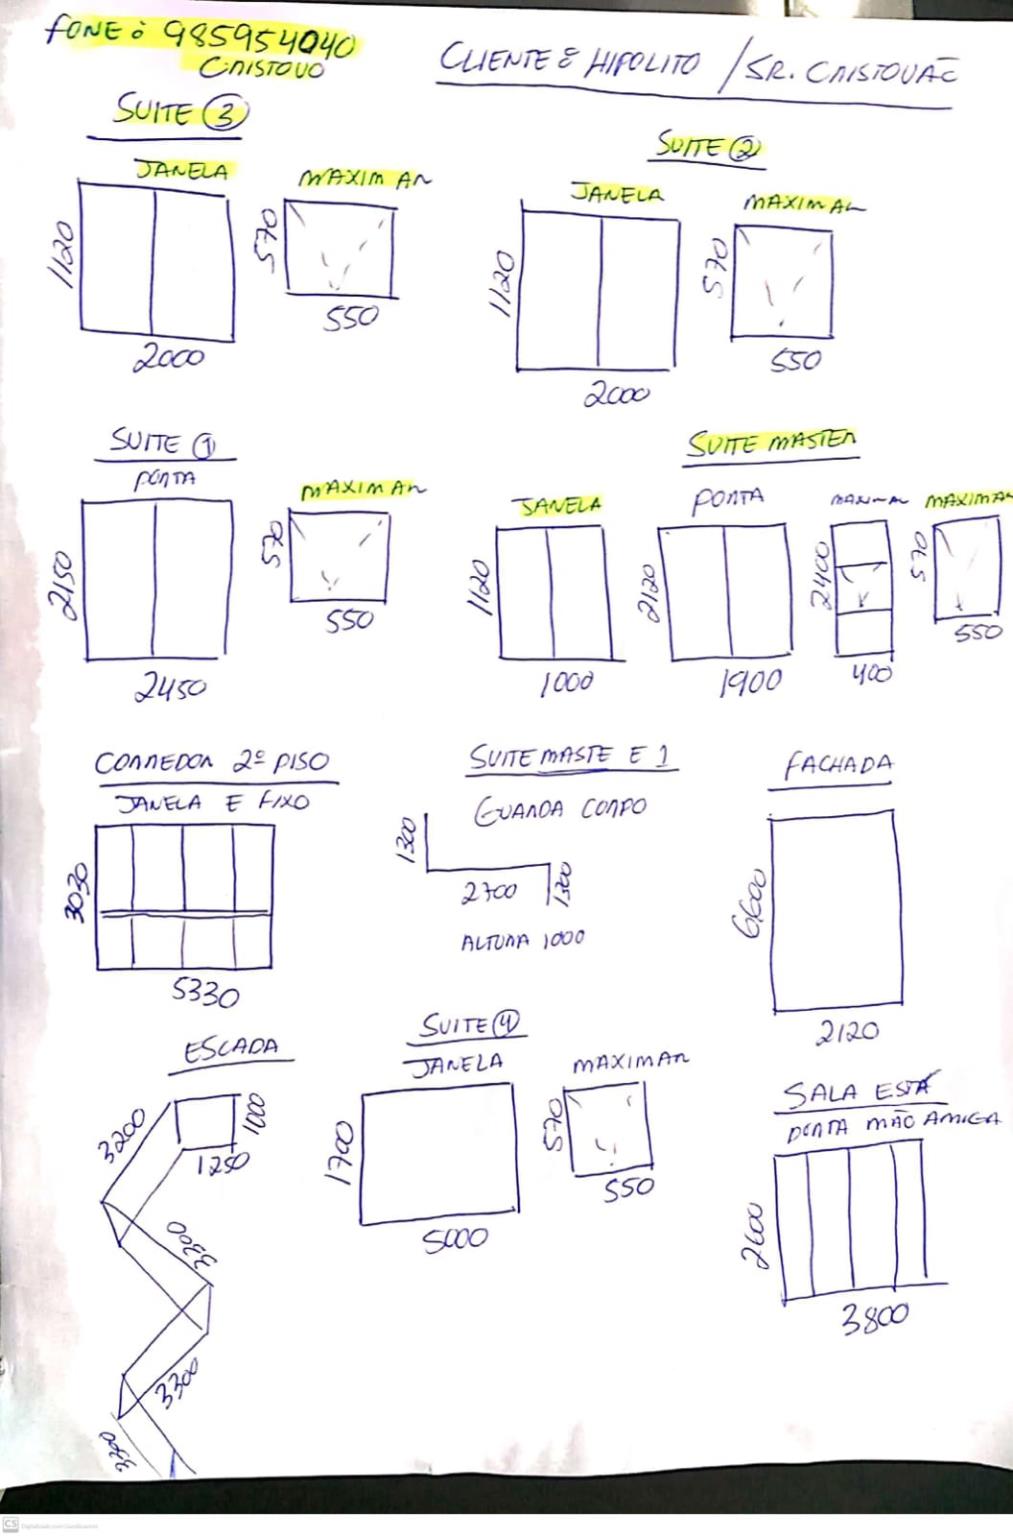 FONE: 985954040
CRISTOVO
CLIENTE: HIPOLITO / SR. CRISTOVÃO
SUITE 3
JANELA
MAXIMAR
1120
2000
570
550
SUITE 2
JANELA
MAXIMAR
1120
2000
570
550
SUITE 1
PORTA
MAXIMAR
2150
2450
570
550
SUITE MASTER
JANELA
PORTA
MAXIMAR
1120
1000
2120
1900
2400
400
570
550
CORREDOR 2º PISO
JANELA E FIXO
3030
5330
SUITE MASTE E 1
GUARDA CORPO
1300
2700
1300
ALTURA 1000
FACHADA
6600
2120
ESCADA
3200
1000
1250
3300
3300
3300
SUITE 4
JANELA
MAXIMAR
1700
5000
570
550
SALA ESTÁ
PORTA MÃO AMIGA
2600
3800
CS